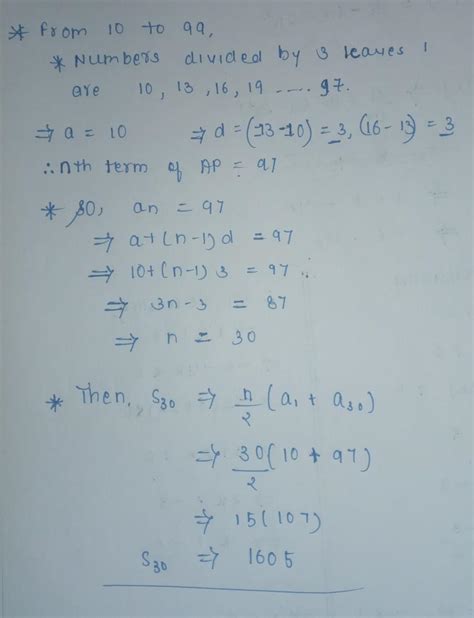 * From 10 to 99,
* Numbers divided by 3 leaves 1
are 10, 13, 16, 19 ---- 97.
⇒ a = 10 ⇒ d = (13-10) = 3, (16-13) = 3
∴ nth term of AP = 97
* SO, an = 97
⇒ a+(n-1)d = 97
⇒ 10+(n-1) 3 = 97
⇒ 3n-3 = 87
⇒ n = 30
* Then, S30 ⇒ n/2 (a1 + a30)
⇒ 30/2 (10 + 97)
⇒ 15(107)
S30 ⇒ 1605